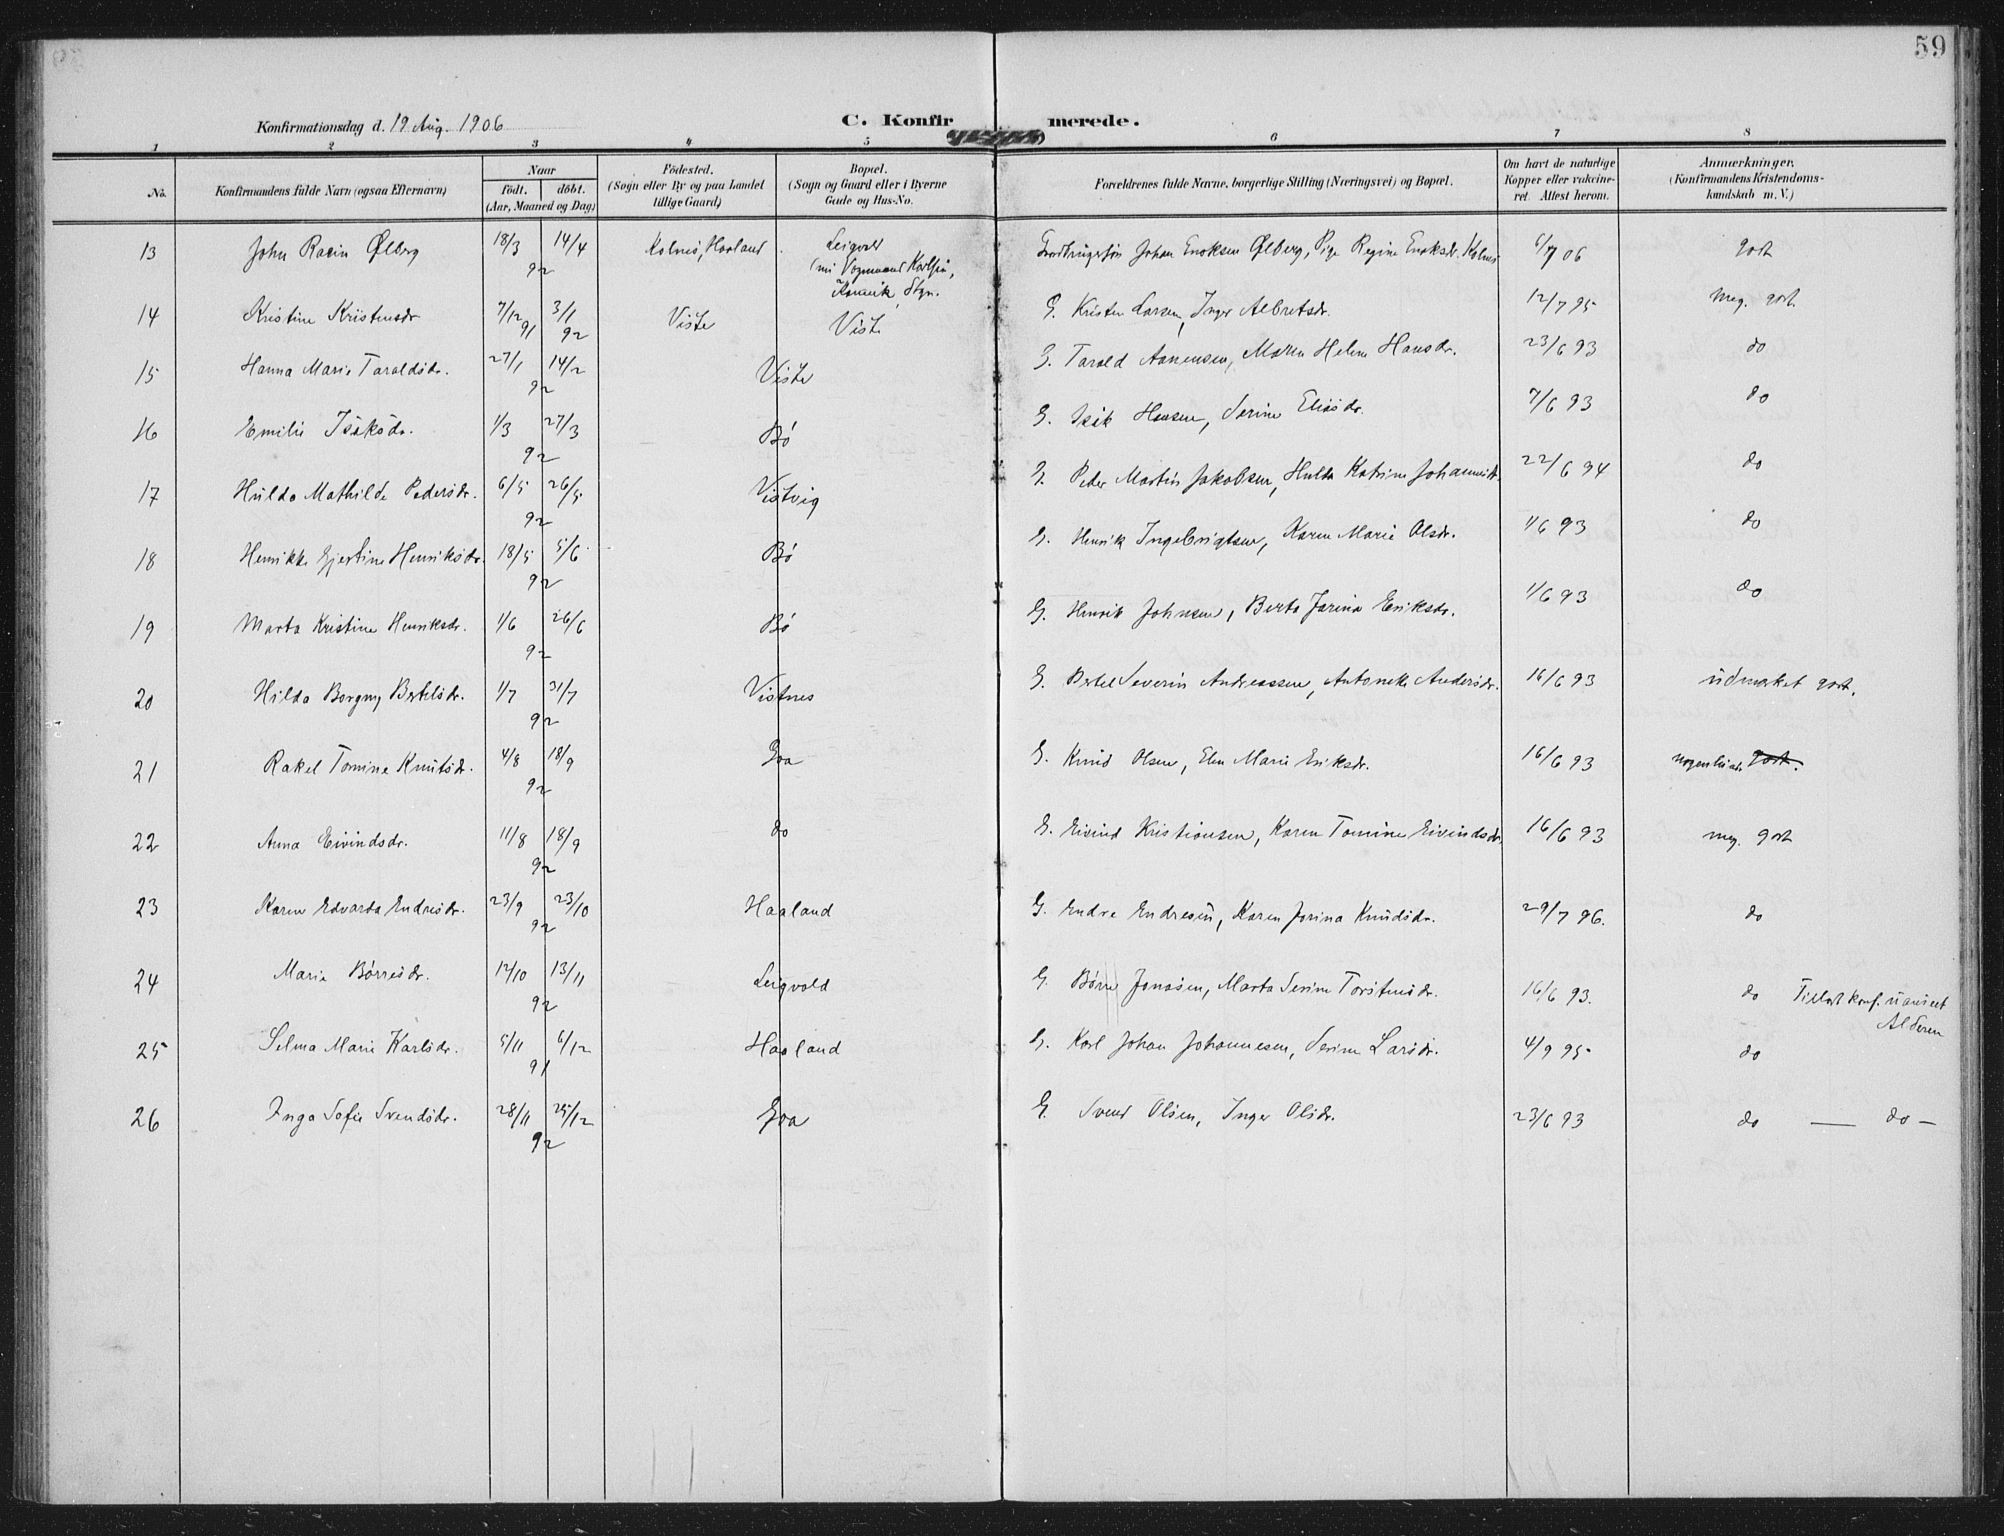 59
Konfirmationsdag d. 19 Aug. 1906
C. Konfirmerede.
1 2 3 4 5 6 7 8
No.
Konfirmandens fulde Navn (ogsaa Efternavn)
Naar
født. døbt.
(Aar, Maaned og Dag)
Fødested.
(Sogn eller By og paa Landet
tillige Gaard)
Bopæl.
(Sogn og Gaard eller i Byerne
Gade og Hus-No.
Forældrenes fulde Navne, borgerlige Stilling (Næringsvei) og Bopæl.
Om havt de naturlige
Kopper eller vakcine-
ret. Attest herom.
Anmærkninger.
(Konfirmandens Kristendoms-
kundskab m. V.)
13 John Rasin Ølberg 18/3 14/4 92 Kolnes, Haaland Leigvold Johan Enoksen Ølberg, Pige Regine Enoksdr. Kolnes 6/7 06 godt
14 Kristine Kristensdr 7/12 91 3/1 92 Viste Viste G. Kristen Larsen, Inger Albretsdr. 12/7 95 meg. godt.
15 Hanna Marie Taraldsdr. 27/1 14/2 92 Viste G. Tarald Aanensen, Maren Helene Hansdr. 23/6 93 do
16 Emilie Isaksdr. 1/3 27/3 92 Bø G. Isak Hansen, Serine Eliasdr. 7/6 93 do
17 Hulda Mathilde Pedersdr. 6/5 26/5 92 Vistvig G. Peder Martin Jakobsen, Hulda Katrine Johannesdr. 22/6 94 do
18 Henrikke Gjertine Henriksdr. 18/5 5/6 92 Bø G. Henrik Ingebrigtsen, Karen Marie Olsdr. 1/6 93 do
19 Marta Kristine Henriksdr. 1/6 26/6 92 Bø G. Henrik Johnsen, Berta Jarina Eriksdr. 1/6 93 do
20 Hilda Borgny Bertelsdr. 1/7 31/7 92 Vistnes G. Bertel Severin Andreassen, Antonette Andersdr. 16/6 93 udmærket godt.
21 Rakel Tomine Knutsdr. 4/8 18/9 92 Goa G. Knud Olsen, Elen Marie Eriksdr. 16/6 93 nogenlunde godt.
22 Anna Eivindsdr. 11/8 18/9 92 do G. Eivind Kristiansen, Karen Tomine Eivindsdr. 16/6 93 meg. godt
23 Karen Edvarda Endresdr. 23/9 23/10 92 Haaland G. Endre Endresen, Karen Jorina Knudsdr. 29/7 96. do
24 Marie Børresdr. 12/10 13/11 92 Leigvold G. Børre Jonasen, Marta Serine Torstensdr. 16/6 93. do Tillat konf. uanseet
Alderen
25 Selma Marie Karlsdr. 5/11 6/12 91 Haaland G. Karl Johan Johannesen, Serine Larsdr. 4/9 95 do
26 Inga Sofie Svendsdr. 28/11 25/12 92 Goa G. Svend Olsen, Inger Olsdr. 23/6 93 do — do —